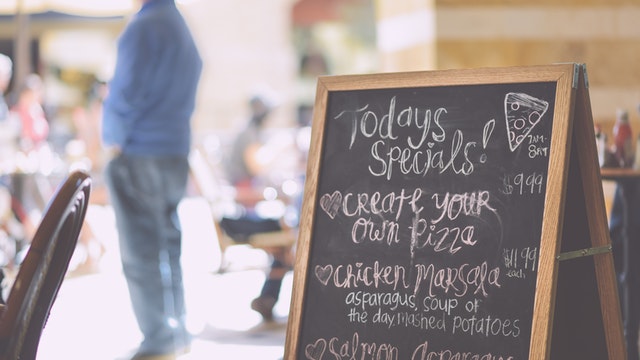 Todays
Specials!
7AM-
8P.
CREATE YOUR
OWN PIZZA
9.99
Chicken Marsala
$11.99
each
asparagus, soup of
the day, mashed potatoes
Salmon Asparagus